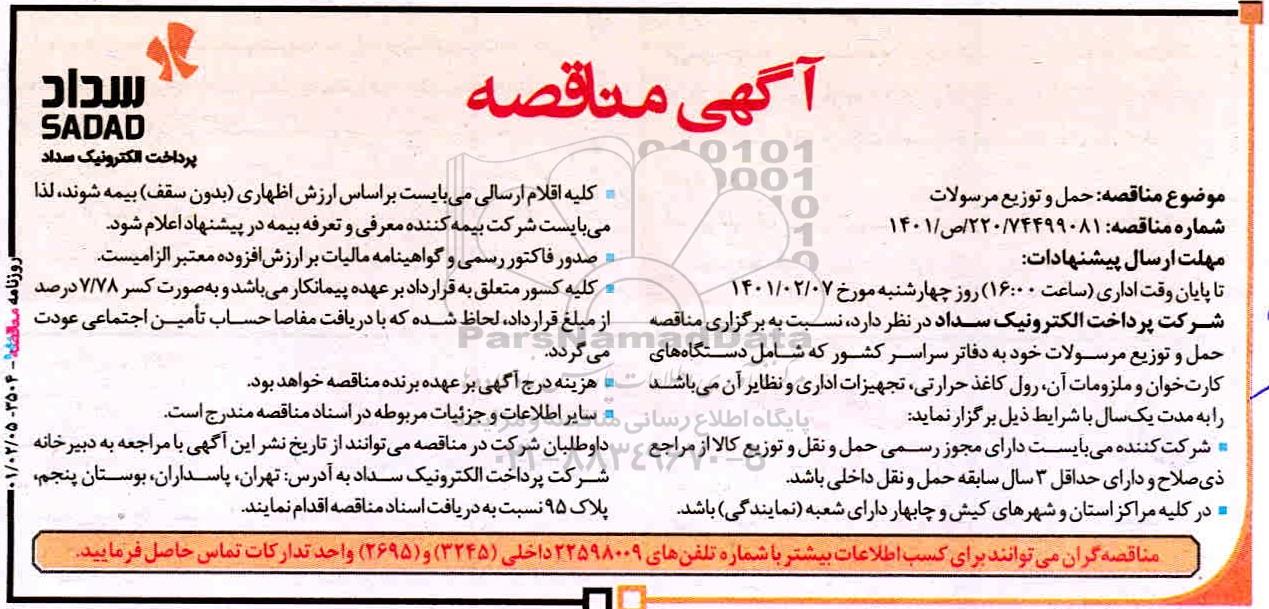 آگهی مناقصه
سداد
SADAD
پرداخت الکترونیک سداد
موضوع مناقصه: حمل و توزیع مرسولات
شماره مناقصه: ۲۲۰/۷۴۴۹۹۰۸۱/ص/۱۴۰۱
مهلت ارسال پیشنهادات:
تا پایان وقت اداری (ساعت ۱۶:۰۰) روز چهارشنبه مورخ ۱۴۰۱/۰۲/۰۷
شرکت پرداخت الکترونیک سداد در نظر دارد، نسبت به برگزاری مناقصه
حمل و توزیع مرسولات خود به دفاتر سراسر کشور که شامل دستگاه‌های
کارت‌خوان و ملزومات آن، رول کاغذ حرارتی، تجهیزات اداری و نظایر آن می‌باشد
را به مدت یک‌سال با شرایط ذیل برگزار نماید:
شرکت‌کننده می‌بایست دارای مجوز رسمی حمل و نقل و توزیع کالا از مراجع
ذی‌صلاح و دارای حداقل ۳ سال سابقه حمل و نقل داخلی باشد.
در کلیه مراکز استان و شهرهای کیش و چابهار دارای شعبه (نمایندگی) باشد.
کلیه اقلام ارسالی می‌بایست براساس ارزش اظهاری (بدون سقف) بیمه شوند، لذا
می‌بایست شرکت بیمه کننده معرفی و تعرفه بیمه در پیشنهاد اعلام شود.
صدور فاکتور رسمی و گواهینامه مالیات بر ارزش‌افزوده معتبر الزامیست.
کلیه کسور متعلق به قرارداد بر عهده پیمانکار می‌باشد و به‌صورت کسر ۷/۷۸ درصد
از مبلغ قرارداد، لحاظ شده که با دریافت مفاصا حساب تأمین اجتماعی عودت
می‌گردد.
هزینه درج آگهی بر عهده برنده مناقصه خواهد بود.
سایر اطلاعات و جزئیات مربوطه در اسناد مناقصه مندرج است.
داوطلبان شرکت در مناقصه می‌توانند از تاریخ نشر این آگهی با مراجعه به دبیرخانه
شرکت پرداخت الکترونیک سداد به آدرس: تهران، پاسداران، بوستان پنجم،
پلاک ۹۵ نسبت به دریافت اسناد مناقصه اقدام نمایند.
مناقصه‌گران می‌توانند برای کسب اطلاعات بیشتر با شماره تلفن‌های ۲۲۵۹۸۰۰۹ داخلی (۳۲۴۵) و (۲۶۹۵) واحد تدارکات تماس حاصل فرمایید.
روزنامه مناقصه - ۳۵۰۴ - ۰۱/۰۲/۰۵
ParsNamadData
پایگاه اطلاع رسانی مناقصه و مزایده
۰۲۱-۸۸۳۴۹۶۷۰-۵